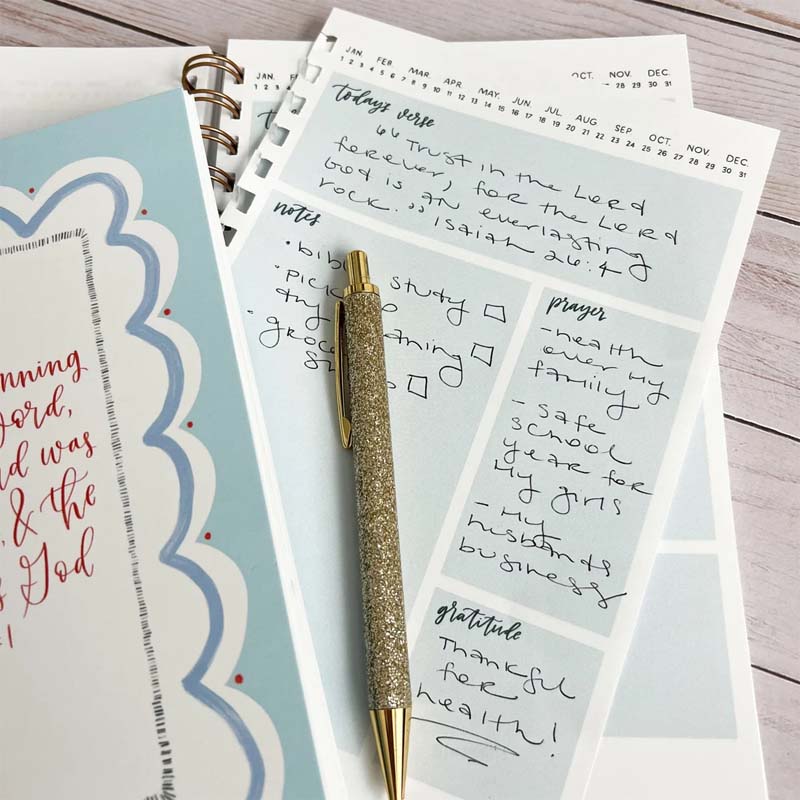 JAN. FEB. MAR. APR. MAY. JUN. JUL. AUG SEP OCT. NOV. DEC.
1 2 3 4 5 6 7 8 9 10 11 12 13 14 15 16 17 18 19 20 21 22 23 24 25 26 27 28 29 30 31
today's verse
“Trust in the Lord
forever, for the Lord
God is an everlasting
rock.” Isaiah 26:4
notes
• study
• pick
•
prayer
- health
over my
family
- safe
school
year for
my girls
- my
hisbands
business
gratitude
Thankful
for
health!
JAN.
1 2 3 4
OCT. NOV. DEC.
28 29 30 31
nning
ord,
nd was
, & the
God